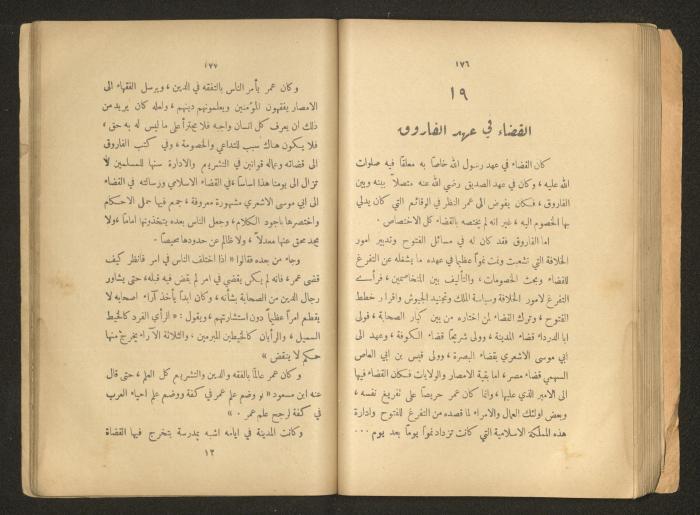 ١٧٦
١٩
القضاء في عهد الفاروق
كان القضاء في عهد رسول الله خاصًا به معلقًا فيه صلوات
الله عليه، وكان في عهد الصديق رضي الله عنه متصلاً بينه وبين
الفاروق، فكان يفوض الى عمر النظر في الوقائع التي كان يدلي
بها الخصوم اليه، غير انه لم يختصه بالقضاء كل الاختصاص.
اما الفاروق فقد كان له في مسائل الفتوح وتدبير امور
الخلافة التي تشعبت ونمت نموًا عظيمًا في عهده ما يشغله عن التفرغ
للقضاء وبحث الخصومات، والتأليف بين المتخاصمين، فرأى
التفرغ لامور الخلافة وسياسة الملك وتجنيد الجيوش واقرار خطط
الفتوح، وترك القضاء لمن اختاره من بين كبار الصحابة، فولى
ابا الدرداء قضاء المدينة، وولى شريحًا قضاء الكوفة، وعهد الى
ابي موسى الاشعري بقضاء البصرة، وولى قيس بن ابي العاص
السهمي قضاء مصر، اما بقية الامصار والولايات فكان القضاء فيها
الى الامير الذي عليها، وانما كان عمر حريصًا على تفريغ نفسه،
وبعض اولئك العمال والامراء لما قصده من التفرغ للفتوح وادارة
هذه المملكة الاسلامية التي كانت تزداد نموًا يومًا بعد يوم ...
١٧٧
وكان عمر يأمر الناس بالتفقه في الدين، ويرسل الفقهاء الى
الامصار يفقهون المؤمنين ويعلمونهم دينهم، ولعله كان يريد من
ذلك ان يعرف كل انسان واجبه فلا يجترأ على ما ليس له به حق،
فلا يكون هناك سبب للتداعي والخصومة، وفي كتب الفاروق
الى قضاته وعماله قوانين في التشريع والادارة سنها للمسلمين لا
تزال الى يومنا هذا اساسًا، في القضاء الاسلامي ورسالته في القضاء
الى ابي موسى الاشعري مشهورة معروفة، جمع فيها جمل الاحكام
واختصرها باجود الكلام، وجعل الناس بعده يتخذونها امامًا، ولا
يجد محق عنها معدلاً، ولا ظالم عن حدودها محيصًا.
وجاء من بعده فقالوا « اذا اختلف الناس في امر فانظر كيف
قضى عمر، فانه لم يكن يقضي في امر لم يقض فيه قبله، حتى يشاور
رجال الدين من الصحابة بشأنه، وكان ابدًا يأخذ آراء اصحابه لا
يقطع امرًا عظيمًا دون استشارتهم، ويقول: « الرأي الفرد كالخيط
السحيل، والرأيان كالخيطين المبرمين، والثلاثة الآراء يخرج منها
حكم لا ينقض »
وكان عمر عالمًا بالفقه والدين والتشريع كل العلم، حتى قال
عنه ابن مسعود « لو وضع علم عمر في كفة ووضع علم احياء العرب
في كفة لرجح علم عمر. »
وكانت المدينة في ايامه اشبه بمدرسة يتخرج فيها القضاة
١٢